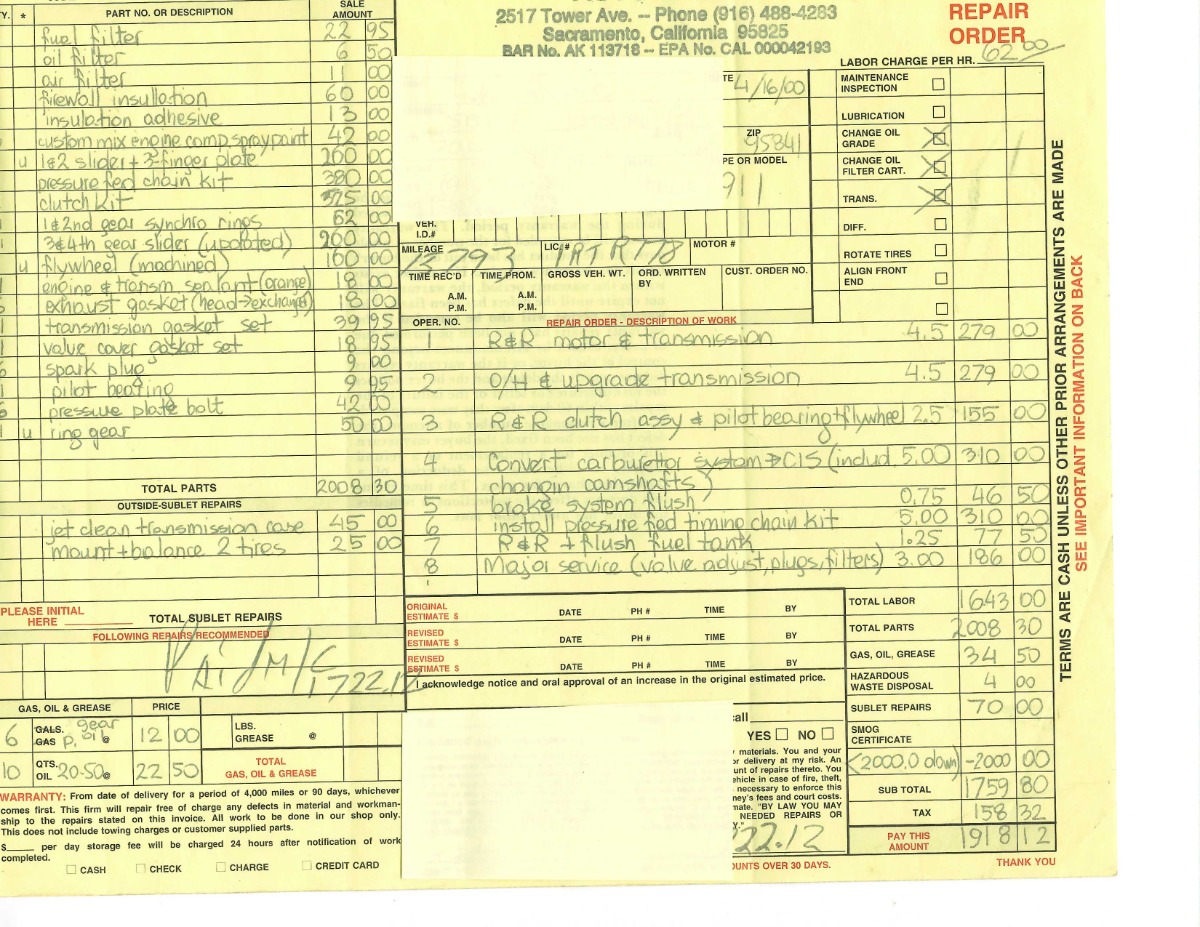 2517 Tower Ave. -- Phone (916) 488-4283
Sacramento, California 95825
BAR No. AK 113718 -- EPA No. CAL 000042193
REPAIR
ORDER
LABOR CHARGE PER HR. 62 00
Y. * PART NO. OR DESCRIPTION SALE AMOUNT
fuel filter 22 95
oil filter 6 50
air filter 11 00
firewall insullation 60 00
insulation adhesive 13 00
custom mix engine comp. spray paint 42 00
u 1&2 slider + 3-finger plate 200 00
pressure fed chain kit 380 00
clutch kit 525 00
1&2nd gear synchro rings 62 00
3&4th gear slider (updated) 260 00
u flywheel (machined) 160 00
engine & transm. sealant (orange) 18 00
exhaust gasket (head->exchanger) 18 00
transmission gasket set 39 95
valve cover gasket set 18 95
spark plug 9 00
pilot bearing 9 95
pressure plate bolt 42 00
u ring gear 50 00
TOTAL PARTS 2008 30
OUTSIDE-SUBLET REPAIRS
jet clean transmission case 45 00
mount + balance 2 tires 25 00
PLEASE INITIAL
HERE
TOTAL SUBLET REPAIRS
FOLLOWING REPAIRS RECOMMENDED
PAID M/C
1722.12
GAS, OIL & GREASE PRICE
6 GALS. GAS gear p. oil @ 12 00
10 QTS. OIL 20-50 @ 22 50
LBS. GREASE @
TOTAL
GAS, OIL & GREASE
WARRANTY: From date of delivery for a period of 4,000 miles or 90 days, whichever
comes first. This firm will repair free of charge any defects in material and workman-
ship to the repairs stated on this invoice. All work to be done in our shop only.
This does not include towing charges or customer supplied parts.
$ per day storage fee will be charged 24 hours after notification of work
completed.
CASH CHECK CHARGE CREDIT CARD
TE 4/16/00
ZIP
95841
PE OR MODEL
911
VEH.
I.D.#
MILEAGE LIC.# MOTOR #
13,793
TIME REC'D TIME PROM. GROSS VEH. WT. ORD. WRITTEN BY CUST. ORDER NO.
A.M. A.M.
P.M. P.M.
MAINTENANCE
INSPECTION
LUBRICATION
CHANGE OIL
GRADE
CHANGE OIL
FILTER CART.
TRANS.
DIFF.
ROTATE TIRES
ALIGN FRONT
END
OPER. NO. REPAIR ORDER - DESCRIPTION OF WORK
1 R&R motor & transmission 4.5 279 00
2 O/H & upgrade transmission 4.5 279 00
3 R&R clutch assy & pilot bearing + flywheel 2.5 155 00
4 Convert carburettor system → CIS (includ. 5.00 310 00
changin camshafts)
5 brake system flush 0.75 46 50
6 install pressure fed timing chain kit 5.00 310 00
7 R&R + flush fuel tank 1.25 77 50
8 Major service (valve adjust, plugs, filters) 3.00 186 00
ORIGINAL
ESTIMATE $ DATE PH # TIME BY
REVISED
ESTIMATE $ DATE PH # TIME BY
REVISED
ESTIMATE $ DATE PH # TIME BY
I acknowledge notice and oral approval of an increase in the original estimated price.
call
YES NO
materials. You and your
or delivery at my risk. An
unt of repairs thereto. You
vehicle in case of fire, theft,
necessary to enforce this
ney's fees and court costs.
mate. "BY LAW YOU MAY
NEEDED REPAIRS OR
22.12
UNTS OVER 30 DAYS.
TOTAL LABOR 1643 00
TOTAL PARTS 2008 30
GAS, OIL, GREASE 34 50
HAZARDOUS
WASTE DISPOSAL 4 00
SUBLET REPAIRS 70 00
SMOG
CERTIFICATE
<2000,0 down) -2000 00
SUB TOTAL 1759 80
TAX 158 32
PAY THIS
AMOUNT 1918 12
THANK YOU
TERMS ARE CASH UNLESS OTHER PRIOR ARRANGEMENTS ARE MADE
SEE IMPORTANT INFORMATION ON BACK